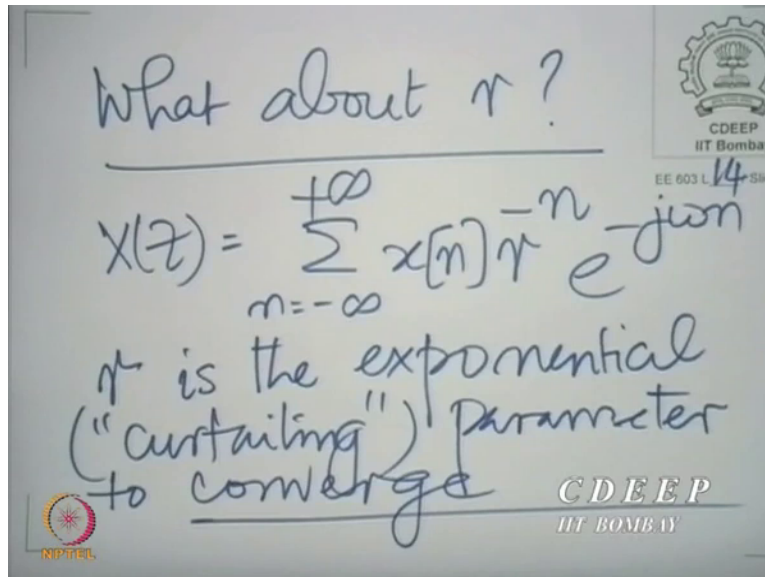 What about r?
CDEEP
IIT Bombay
EE 603 L 14 Sli
X(Z) = +∞ Σ n=-∞ x[n] r^-n e^-jωn
r is the exponential
("curtailing") parameter
to converge
CDEEP
IIT BOMBAY
NPTEL